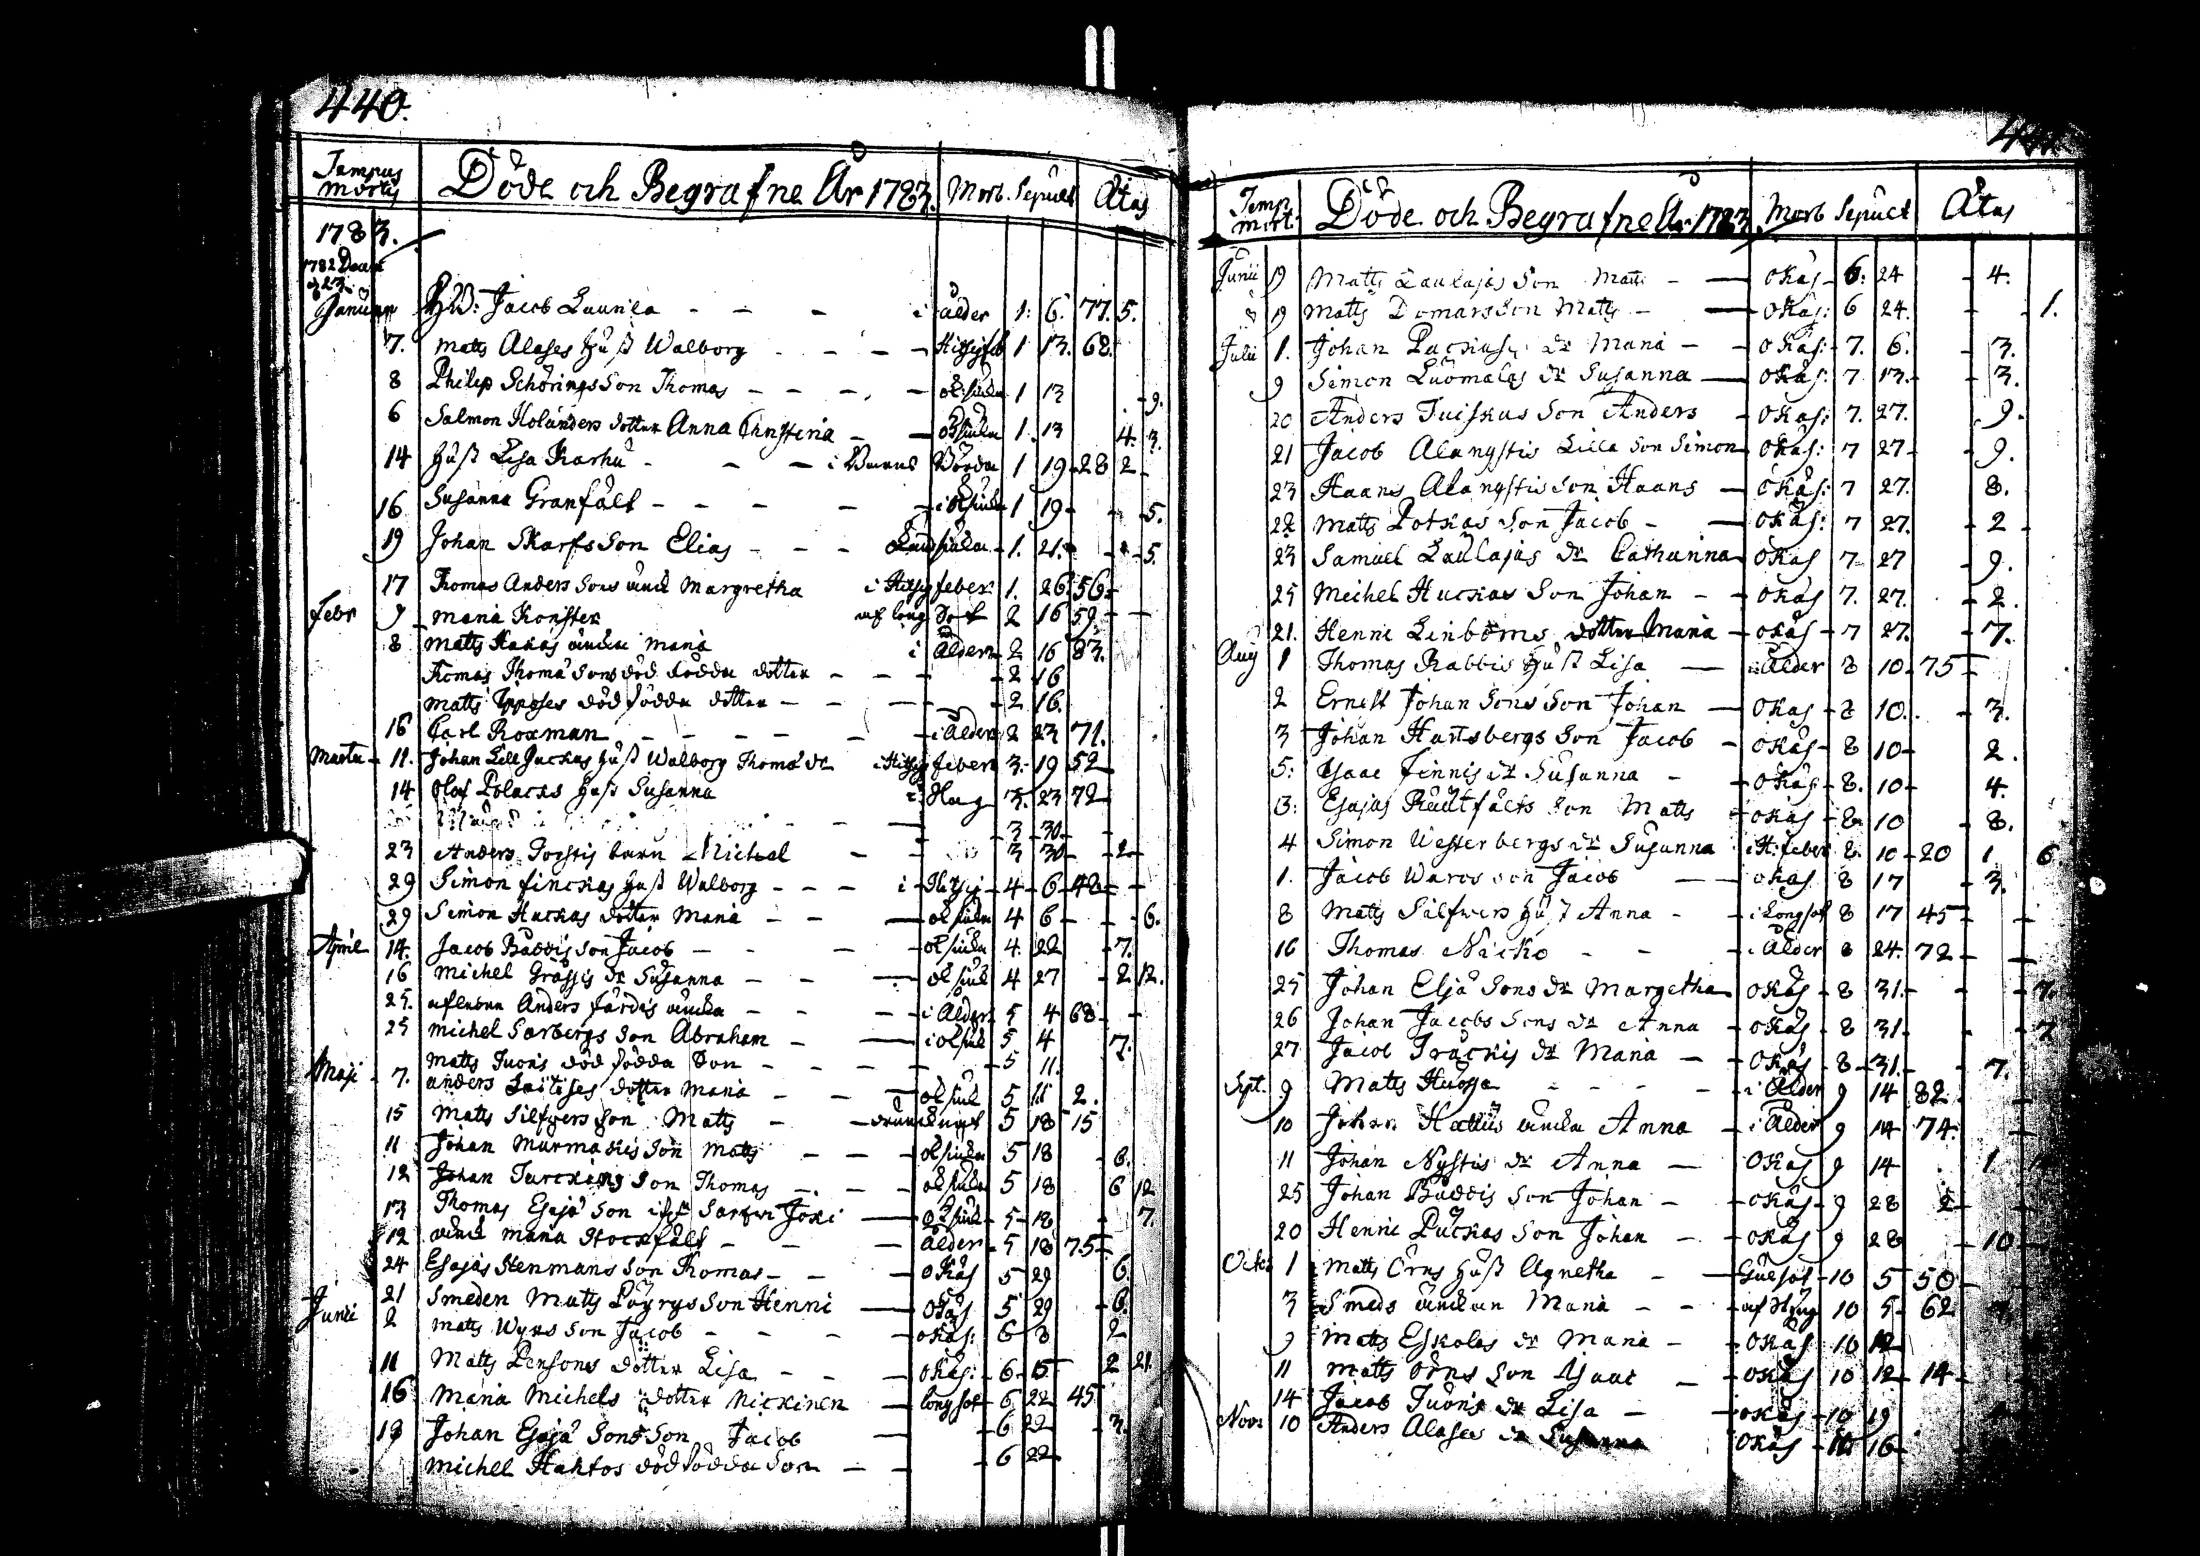 440.
Tempus mortis Döde och Begrafne År 1783. Morb. Sepult Ætas
1783.
1782 Decem
d 23
Januar Hd: Jacob Launila - - - i ålder 1: 6. 77. 5.
7. Matts Alases Hust Walborg - - - - Hitzigfeb 1 13. 62.
8 Philip Schörings Son Thomas - - - - oksiuka 1 13 - 9.
6 Salmon Holanders dotter Anna Christina - - oksiuka 1. 13 4. 3.
14 Hust Lisa Karhu - - - i Barns Börda 1 19 - 28 2 -
16 Susanna Granfält - - - - - i oksiuka 1 19 - - 5.
19 Johan Skarfs Son Elias - - - siuka - 1. 21. - - 5.
17 Thomas Anders Sons änck Margretha i Hitsig feber. 1. 26. 56 -
Febr 9 Maria Konster af long Sot 2 16 59 - -
8 Matts Hakas äncka Maria i Åldern 2 16 83.
Thomas Thomä Sons död födda dotter - - - - 2 16
Matts Ipposes död födda dotter - - - - 2 16.
16 Carl Roxman - - - - - i Ålder 2 23 71.
Martii - 11. Johan Lill Juckas Hust Walborg Thomä dr i Hitsig feber 3 - 19 52 -
14 Olof Polacks Hust Susanna i Hug 3. 23 72 -
- 3 - 30 -
23 Anders barn Michel - - 3 30 - - 2 -
29 Simon Finckas Hust Walborg - - - i Hitsig - 4 - 6 - 48 - -
29 Simon Huckas dotter Maria - - - oksiuka 4 6 - - - 6.
April 14. Jacob Båddis Son Jacob - - - - oksiuka 4. 22 - 7.
16 Michel Grågsis dr Susanna - - - oksiuk 4 27 - 2 12.
25. afledne Anders Färdis äncka - - - i Ålder 5 4 68 - -
25 Michel Sorbergs Son Abraham - - i oksiuk 5 4 7.
Matts Tuoris död födda Son - - - - - 5 11.
Maji - 7. Anders Laitises dotter Maria - - - oksiuk 5 11 2.
15 Matts Silfvers Son Matts - - drunknat 5 18 15
11 Johan Murmäckis Son Matts - - - oksiuka 5 18 - 6.
12 Johan Turckings Son Thomas - - - oksiuka 5 18 6 12
13 Thomas Esajä Son Särkijoki - oksiuk - 5 - 18 - 7.
12 änck Maria Stockfält - - - Ålder - 5 18 75 -
24 Esajas Stenmans Son Thomas - - - o Käs 5 29 6.
21 Smeden Matts Löyrys Son Henric - okäs 5 29 - 6.
Junii 2 Matts Wyks Son Jacob - - - - okäs: 6 8 2
11 Matts Pensons dotter Lisa - - - okäs: - 6 - 15 - 2 21.
16 Maria Michels dotter Nickinen - long sot - 6 22 45
19 Johan Esajä Sons Son Jacob - - 6 22 - - 3.
Michel Hahtos död födda Son - - - 6 22 -
441
Temp mort: Döde och Begrafne År 1783. Morb Sepult Ætas
Junii 19 Matts Laulajas Son Matts - - okäs - 6: 24 - 4.
19 Matts Domars Son Matts - - okäs: 6 24. - - 1.
Julii 1. Johan Puckas dr Maria - - okäs: - 7. 6. - 3.
9 Simon Luomalas dr Susanna - okäs: 7 13. - - 3.
20 Anders Tuiskus Son Anders - okäs: 7. 27. 9.
21 Jacob Alangstis Lilla Son Simon - okäs: 7 27 - - 9.
23 Haans Alangstis Son Haans - okäs: 7 27. 8.
22 Matts Potkas Son Jacob - - okäs: 7 27. - 2 -
23 Samuel Laulajas dr Catharina okäs 7 - 27 - 9.
25 Michel Huckas Son Johan - - okäs 7. 27. - 2.
21. Henric Linboms dotter Maria - okäs - 7 27. - 7.
Aug 1 Thomas Rabbis Hust Lisa - i Ålder 8 10 - 75 -
2 Ernest Johan Sons Son Johan - okäs - 8 10. - 3.
3 Johan Hartsbergs Son Jacob - okäs - 8 10 - 2.
5: Isaac Finnis dr Susanna - - okäs - 8. 10 - 4.
3: Esajas Rautfälts Son Matts - okäs - 8 - 10 - 8.
4 Simon Westerbergs dr Susanna i H: feber 8 - 10 - 20 1 6
1. Jacob Waros Son Jacob - - okäs 8 17 - 3.
8 Matts Silfvers Hust Anna - - i Longsot 8 17 45 - -
16 Thomas Näcko - - - i Ålder 8 24. 72 - -
25 Johan Eljä Sons dr Margetha okäs - 8 31. - - - 7.
26 Johan Jacobs Sons dr Anna - okäs - 8 31 - - 7
27 Jacob Träckis dr Maria - - okäs - 8 - 31. - - 7.
Sept. 9 Matts Huossa - - - - i Ålder 9 14 82 -
10 Johan Hattis äncka Anna - i Ålder 9 14 74. -
11 Johan Nystis dr Anna - okäs 9 14 1
25 Johan Båddis Son Johan - - okäs - 9 28 2 -
20 Henric Puckas Son Johan - - okäs 9 28 - 10 -
Octob 1 Matts Örns Hust Agnetha - - Gulsot - 10 5 50 -
3 Smeds änckan Maria - - - af Hug 10 5 - 62
9 Matts Eskolas dr Maria - - okäs 10 12
11 Matts Örns Son Isaac - - okäs 10 12 - 14 -
14 Jacob Tuoris dr Lisa - - okäs - 10 19
Nov: 10 Anders Alases dr Susanna okäs - 16 -